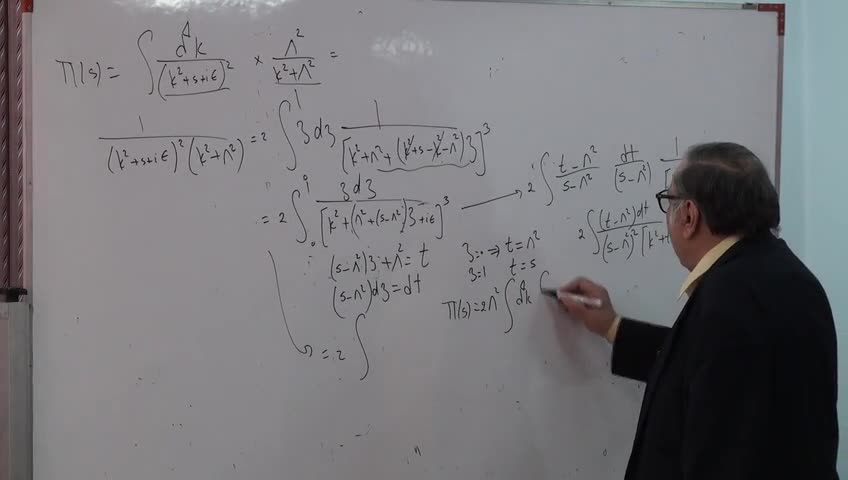 Π(s) = ∫ d⁴k / (k²+s+iϵ)² × Λ² / (k²+Λ²) =
1 / (k²+s+iϵ)² (k²+Λ²) = 2 ∫₀¹ 3d3 1 / [k²+Λ²+(k²+s-k²-Λ²)3]³
= 2 ∫₀¹ 3d3 / [k²+(Λ²+(s-Λ²)3+iϵ]³
2 ∫ t-Λ² / s-Λ² dt / (s-Λ²) 1 / [
2 ∫ (t-Λ²)dt / (s-Λ²)² [k²+t
(s-Λ²)3+Λ² = t
(s-Λ²)d3 = dt
3=0 ⇒ t=Λ²
3=1 t=s
Π(s) = 2Λ² ∫ d⁴k ∫
= 2 ∫